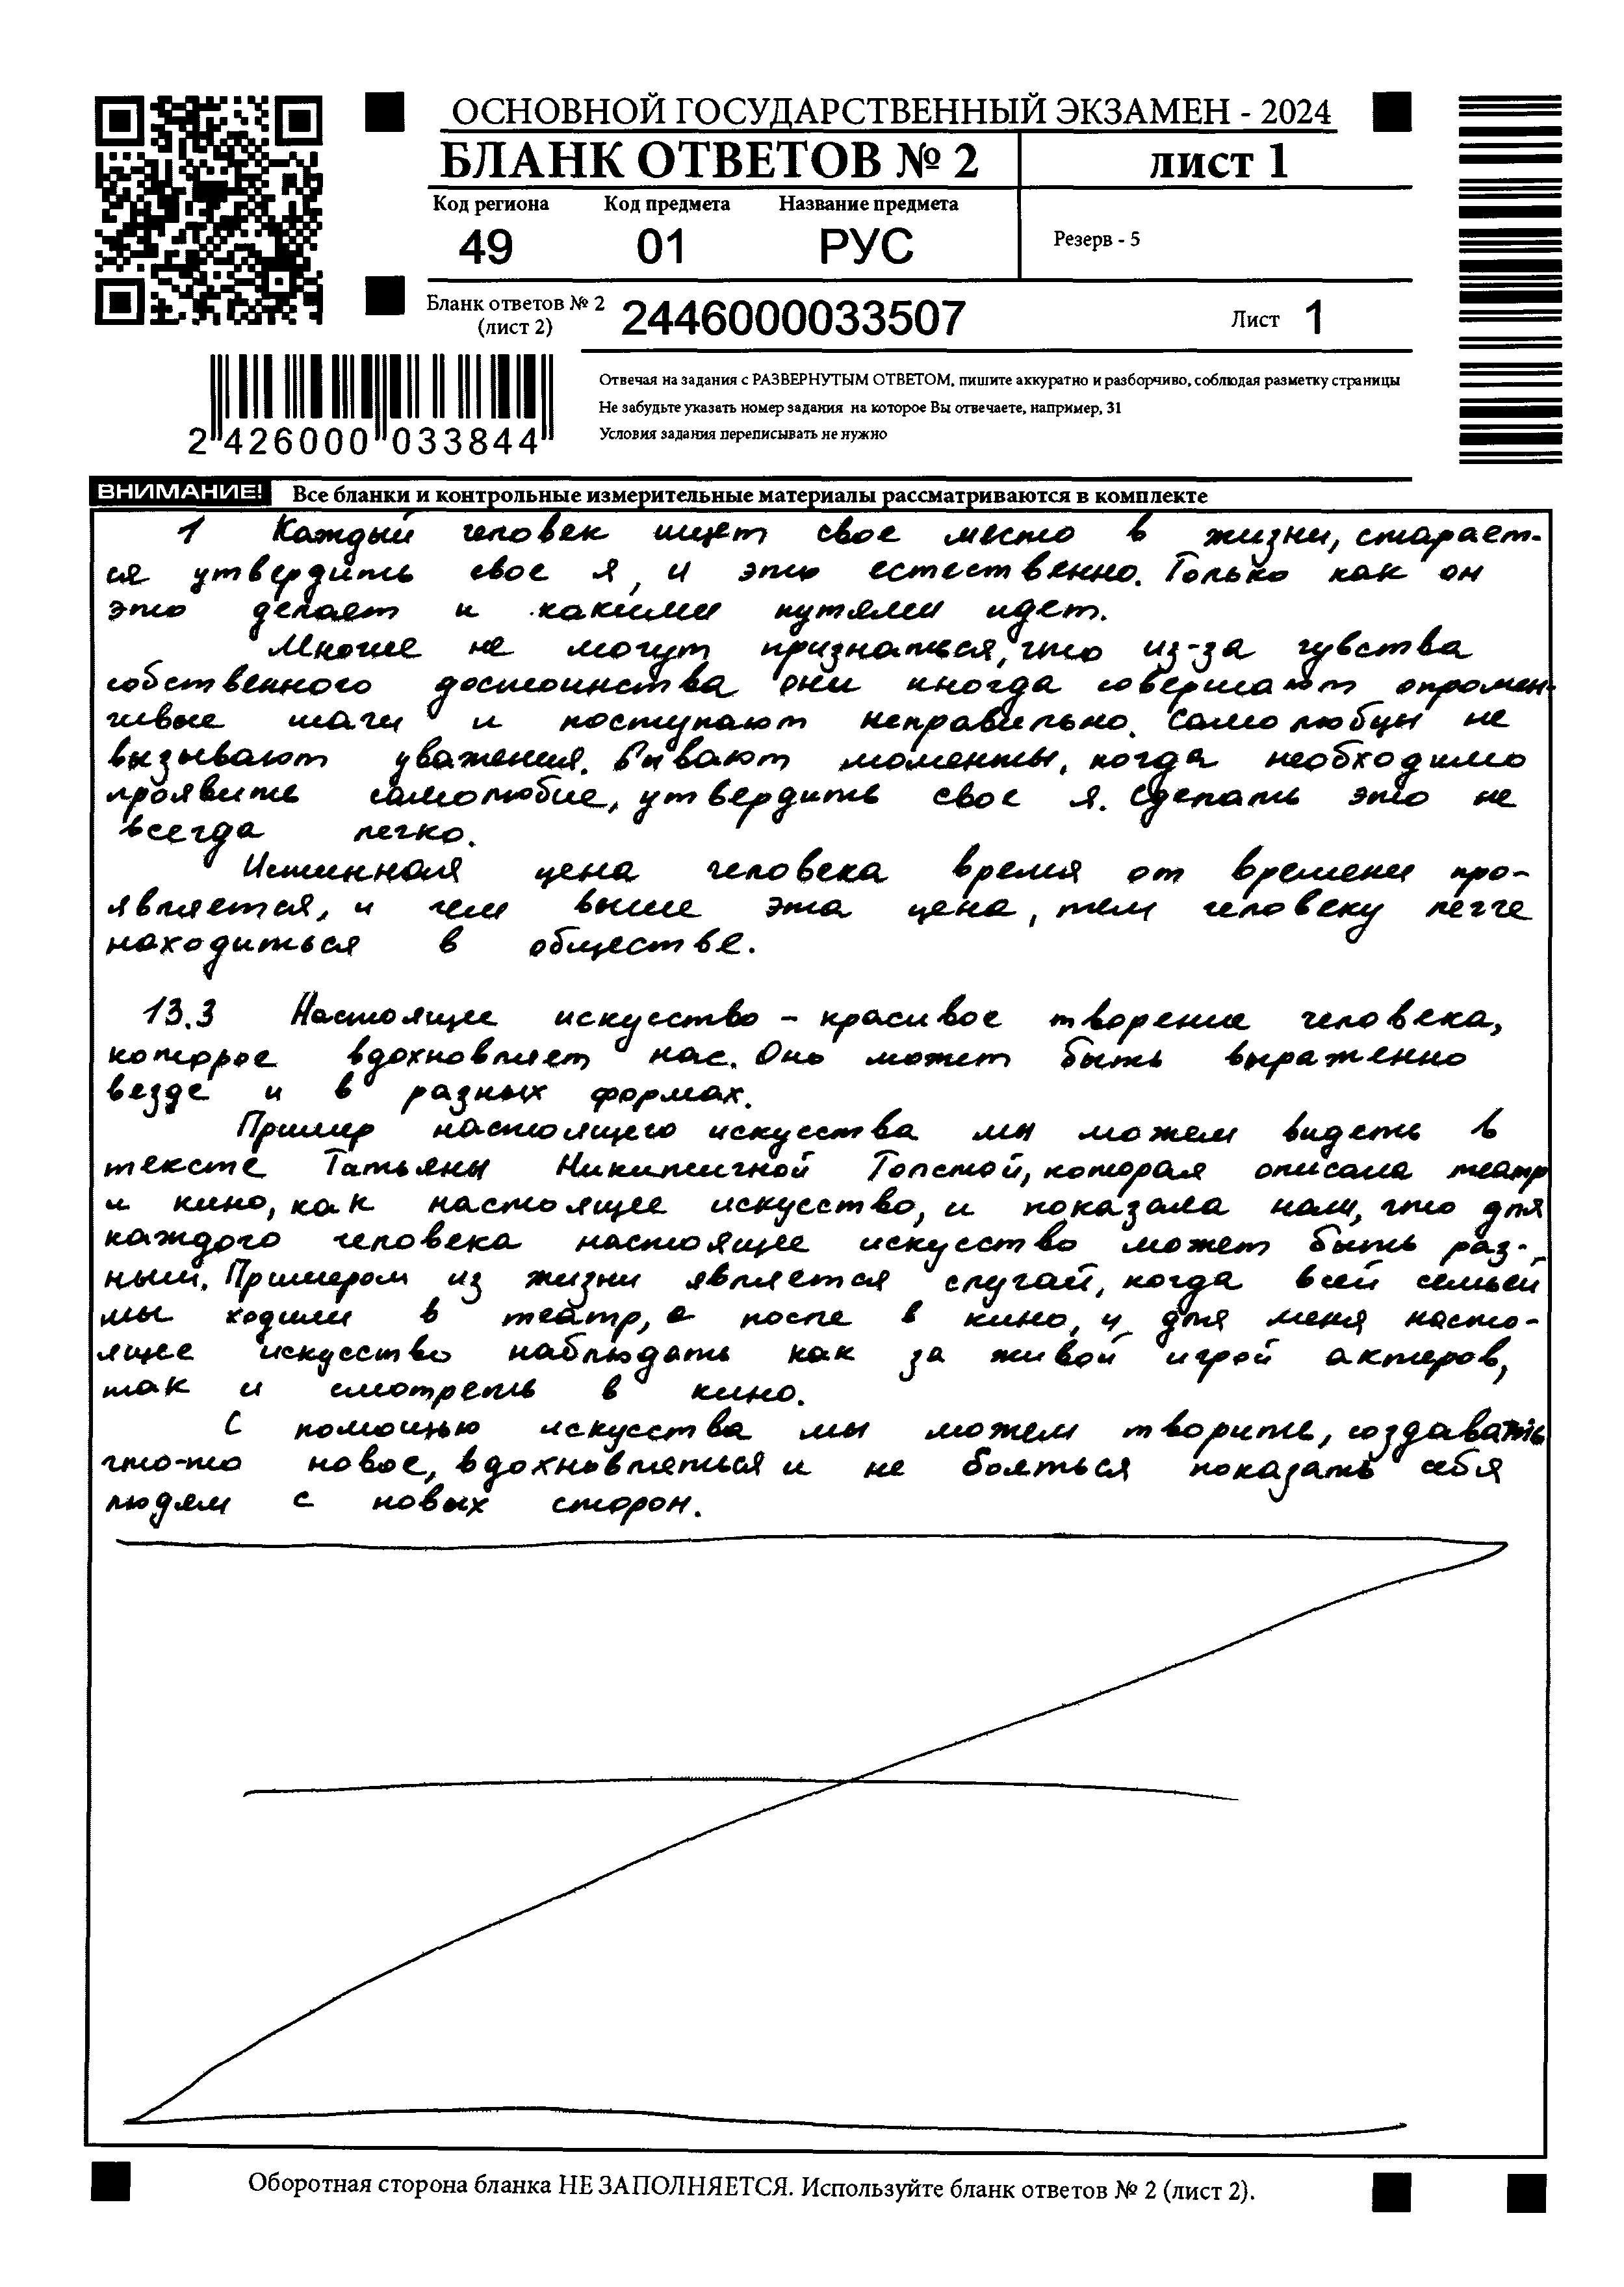 ОСНОВНОЙ ГОСУДАРСТВЕННЫЙ ЭКЗАМЕН - 2024
БЛАНК ОТВЕТОВ № 2
лист 1
Код региона Код предмета Название предмета
49 01 РУС
Резерв - 5
Бланк ответов № 2
(лист 2)
2446000033507
Лист 1
2 426000 033844
Отвечая на задания с РАЗВЕРНУТЫМ ОТВЕТОМ, пишите аккуратно и разборчиво, соблюдая разметку страницы
Не забудьте указать номер задания на которое Вы отвечаете, например, 31
Условия задания переписывать не нужно
ВНИМАНИЕ! Все бланки и контрольные измерительные материалы рассматриваются в комплекте
1 Каждый человек ищет свое место в жизни, старает-
ся утвердить свое я, и это естественно. Только как он
это делает и какими путями идет.
Многие не могут признаться, что из-за чувства
собственного достоинства они иногда совершают опромен-
чивые шаги и поступают неправильно. Самолюбцы не
вызывают уважения. Бывают моменты, когда необходимо
проявить самолюбие, утвердить свое я. Сделать это не
всегда легко.
Истинная цена человека время от времени про-
является, и чем выше эта цена, тем человеку легче
находиться в обществе.
13.3 Настоящее искусство - красивое творение человека,
которое вдохновляет нас. Оно может быть выраженно
везде и в разных формах.
Пример настоящего искусства мы можем видеть в
тексте Татьяны Никитичной Толстой, которая описала театр
и кино, как настоящее искусство, и показала нам, что для
каждого человека настоящее искусство может быть раз-
ным. Примером из жизни является случай, когда всей семьей
мы ходили в театр, а после в кино, и для меня насто-
ящее искусство наблюдать как за живой игрой актеров,
так и смотреть в кино.
С помощью искусства мы можем творить, создавать
что-то новое, вдохновляться и не бояться показать себя
людям с новых сторон.
Оборотная сторона бланка НЕ ЗАПОЛНЯЕТСЯ. Используйте бланк ответов № 2 (лист 2).